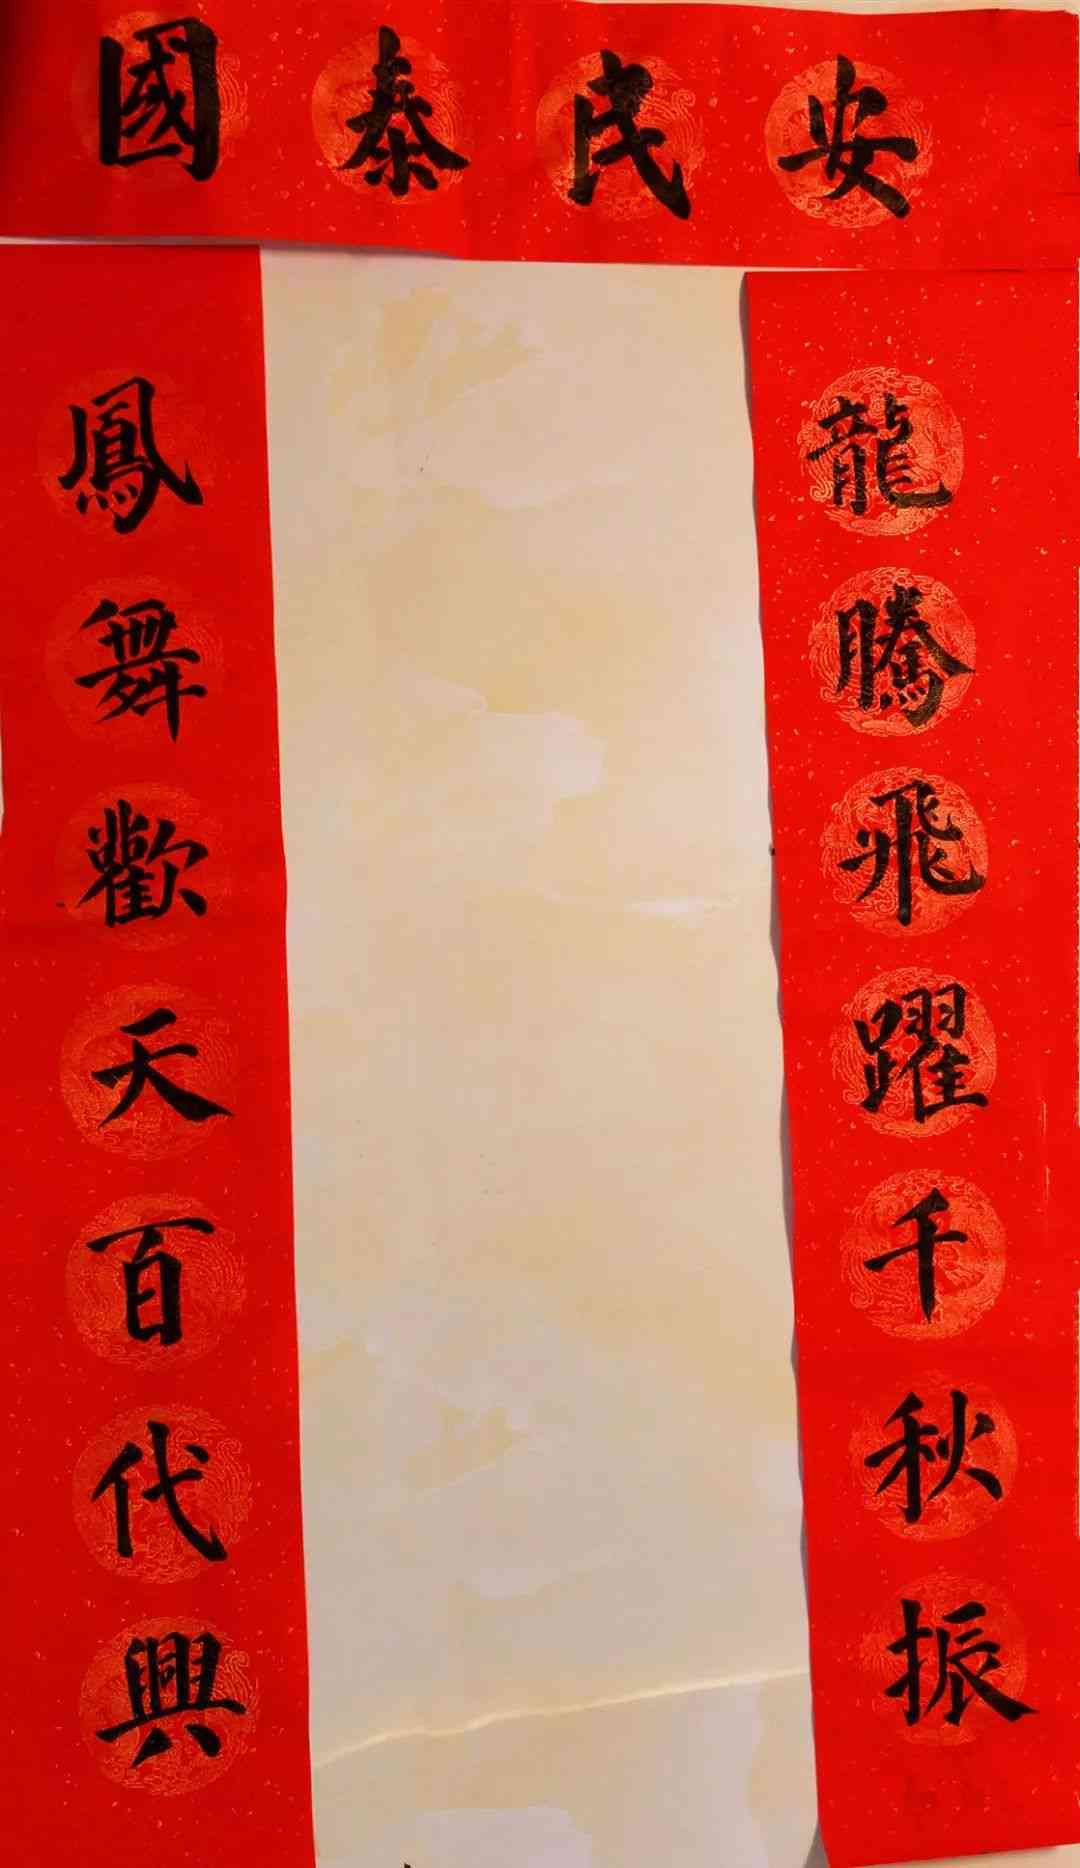 國泰民安
龍騰飛躍千秋振
鳳舞歡天百代興